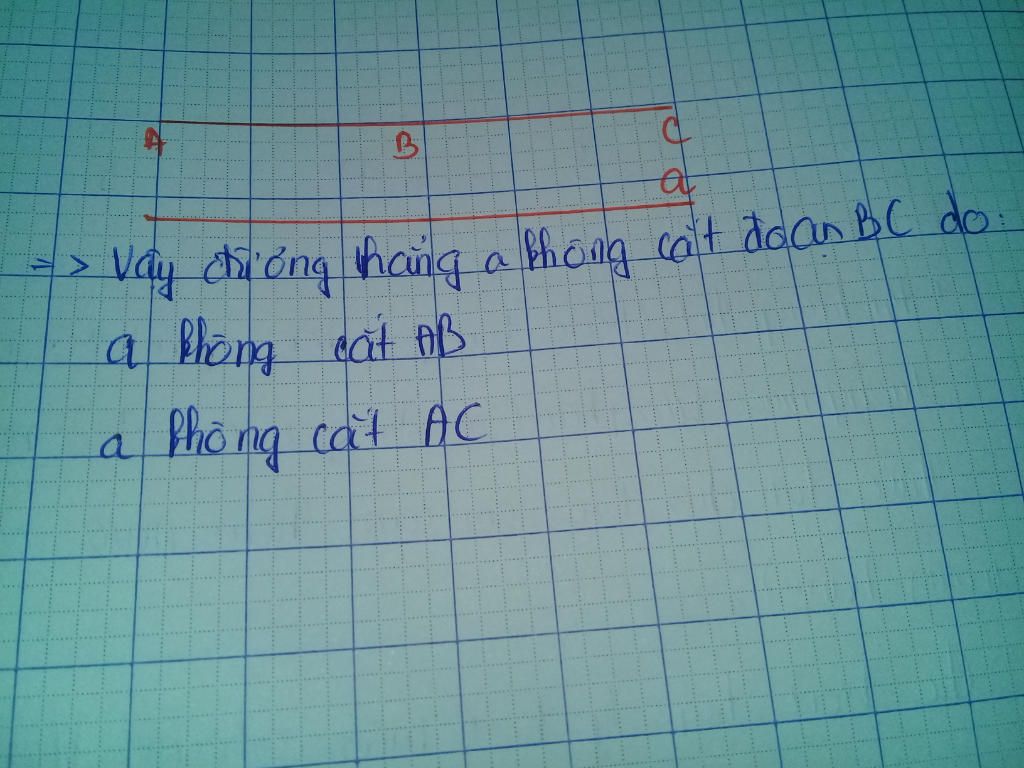 A B C
a
=> Vậy đường thẳng a không cắt đoạn BC do:
a không cắt AB
a không cắt AC